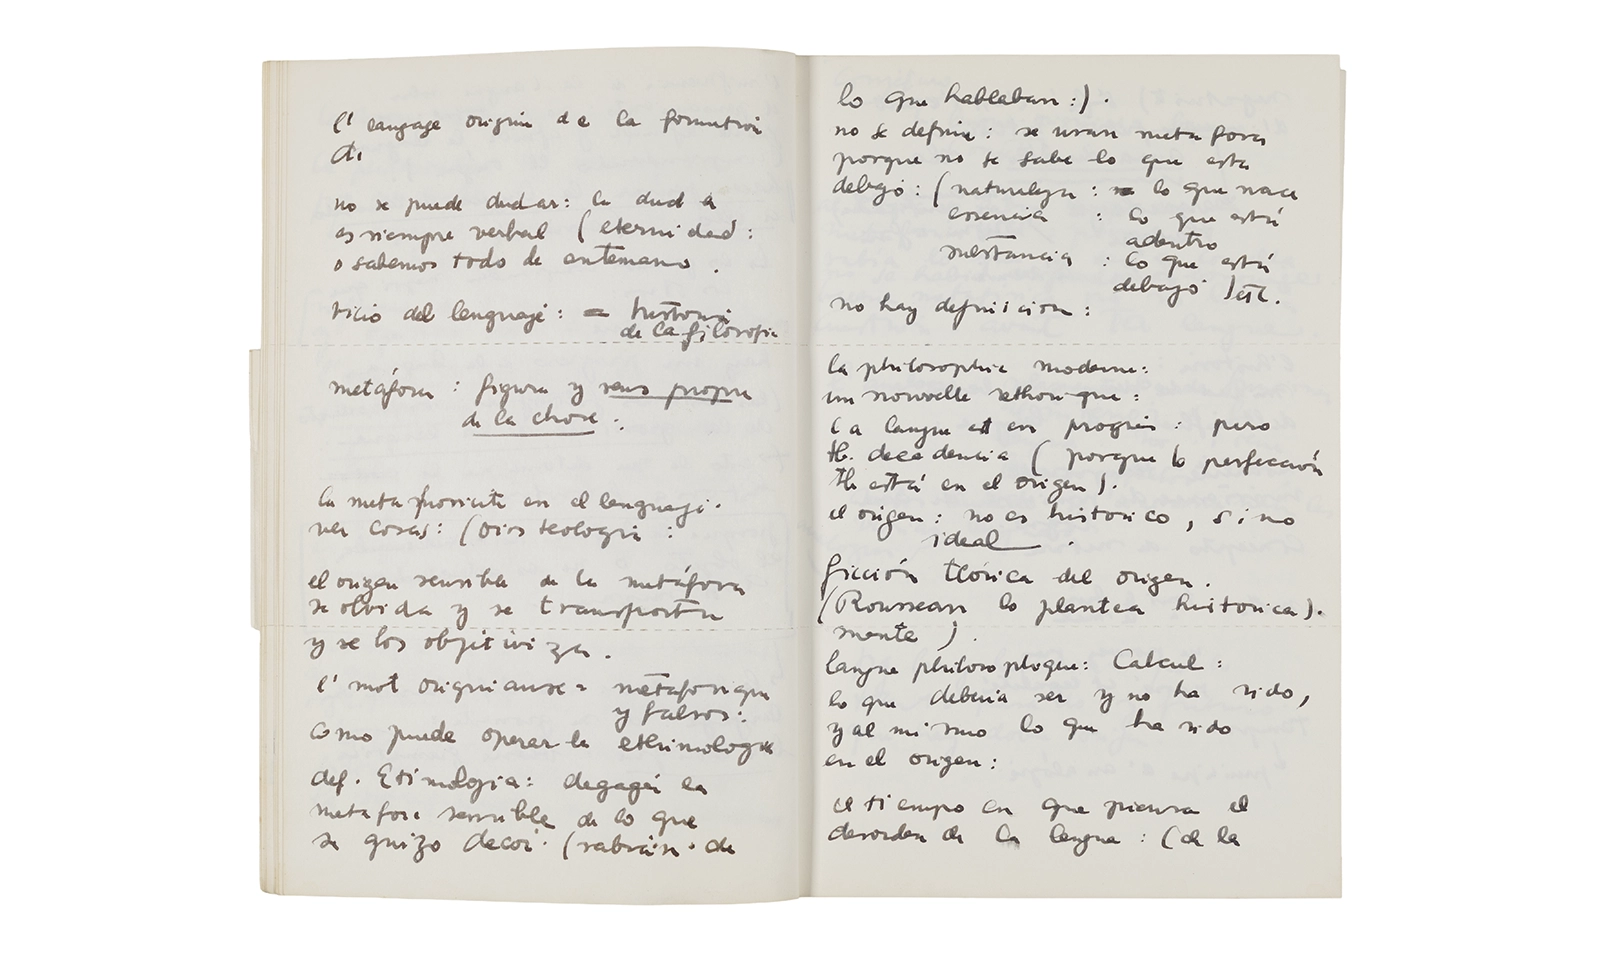 l' langage origin de la formation
di
no se puede dudar: la duda
es siempre verbal (eternidad:
o sabemos todo de antemano.
vicio del lenguaje: = historia
de la filosofia
metáfora: figura y sens propre
de la chose:.
la metaforicité en el lenguaje.
ver cosas: (Dios teologia:
el origen sensible de la metáfora
se olvida y se transporta
y se los objetiviza.
l' mot originause = métaforique
y falsos:.
como puede operar la ethimologia
def. Etimologia: degager la
metafora sensible de lo que
se quizo decir. (sabian. de
lo que hablaban:).
no se define: se usan metafora
porque no se sabe lo que esta
debajo: (naturaleza: lo que nace
esencia : lo que está
adentro
sustancia : lo que está
debajo) etc.
no hay definicion:
la philosophie moderne:
un nouvelle rethorique:
la langue est en progrès: pero
tb. decadencia (porque la perfección
tb está en el origen).
el origen: no es historico, sino
ideal.
ficción teórica del origen.
(Rousseau lo plantea historica).
mente).
langue philosophique: Calcul:
lo que deberia ser y no ha sido,
y al mismo lo que ha sido
en el origen:
el tiempo en que piensa el
desorden de la lengua: (de la